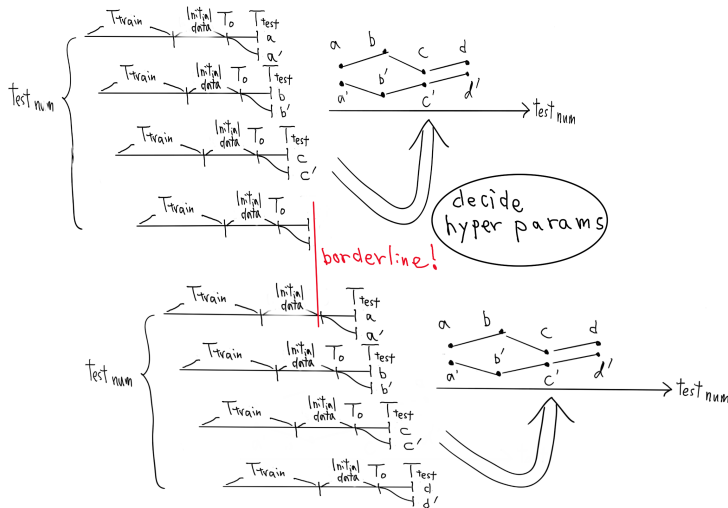 Ttrain Initial data T0 Ttest
a
a'
Ttrain Initial data T0 Ttest
b
b'
test num
Ttrain Initial data T0 Ttest
c
c'
Ttrain Initial data T0
a b c d
a' b' c' d'
test num
decide
hyper params
borderline!
Ttrain Initial data T0 Ttest
a
a'
Ttrain Initial data T0 Ttest
b
b'
test num
Ttrain Initial data T0 Ttest
c
c'
Ttrain Initial data T0 Ttest
d
d'
a b c d
a' b' c' d'
test num